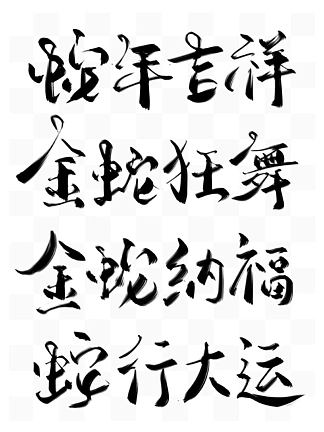 蛇年吉祥
金蛇狂舞
金蛇纳福
蛇行大运